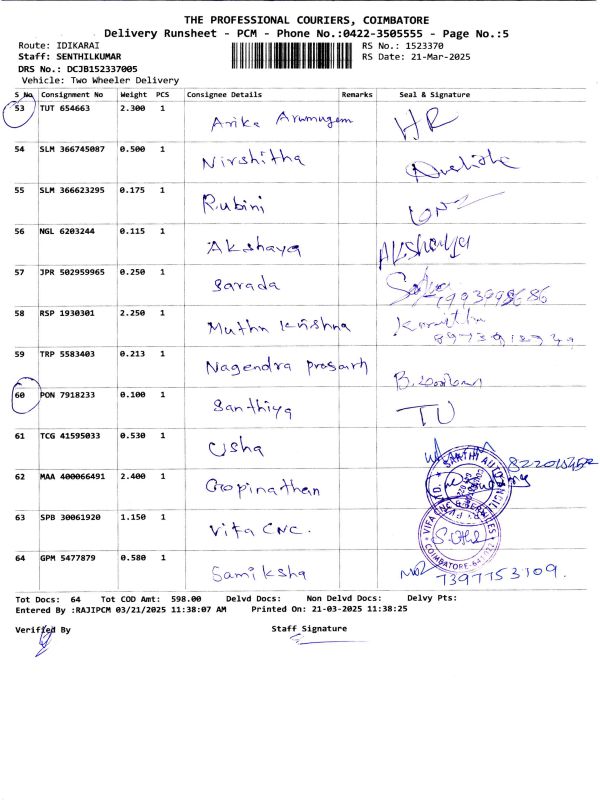 THE PROFESSIONAL COURIERS, COIMBATORE
Delivery Runsheet - PCM - Phone No.:0422-3505555 - Page No.:5
Route: IDIKARAI RS No.: 1523370
Staff: SENTHILKUMAR RS Date: 21-Mar-2025
DRS No.: DCJB152337005
Vehicle: Two Wheeler Delivery
S No Consignment No Weight PCS Consignee Details Remarks Seal & Signature
53 TUT 654663 2.300 1 Arika Arumugem HR
54 SLM 366745087 0.500 1 Nirshitha
55 SLM 366623295 0.175 1 Rubini
56 NGL 6203244 0.115 1 Akshaya Akshaya
57 JPR 502959965 0.250 1 Sarada
58 RSP 1930301 2.250 1 Muthu Krishna
59 TRP 5583403 0.213 1 Nagendra prosarh
60 PON 7918233 0.100 1 Santhiya TU
61 TCG 41595033 0.530 1 Usha
62 MAA 400066491 2.400 1 Gopinathan
63 SPB 30061920 1.150 1 Vifa CNC.
64 GPM 5477879 0.580 1 Samiksha 7397753109.
Tot Docs: 64 Tot COD Amt: 598.00 Delvd Docs: Non Delvd Docs: Delvy Pts:
Entered By :RAJIPCM 03/21/2025 11:38:07 AM Printed On: 21-03-2025 11:38:25
Verified By Staff Signature